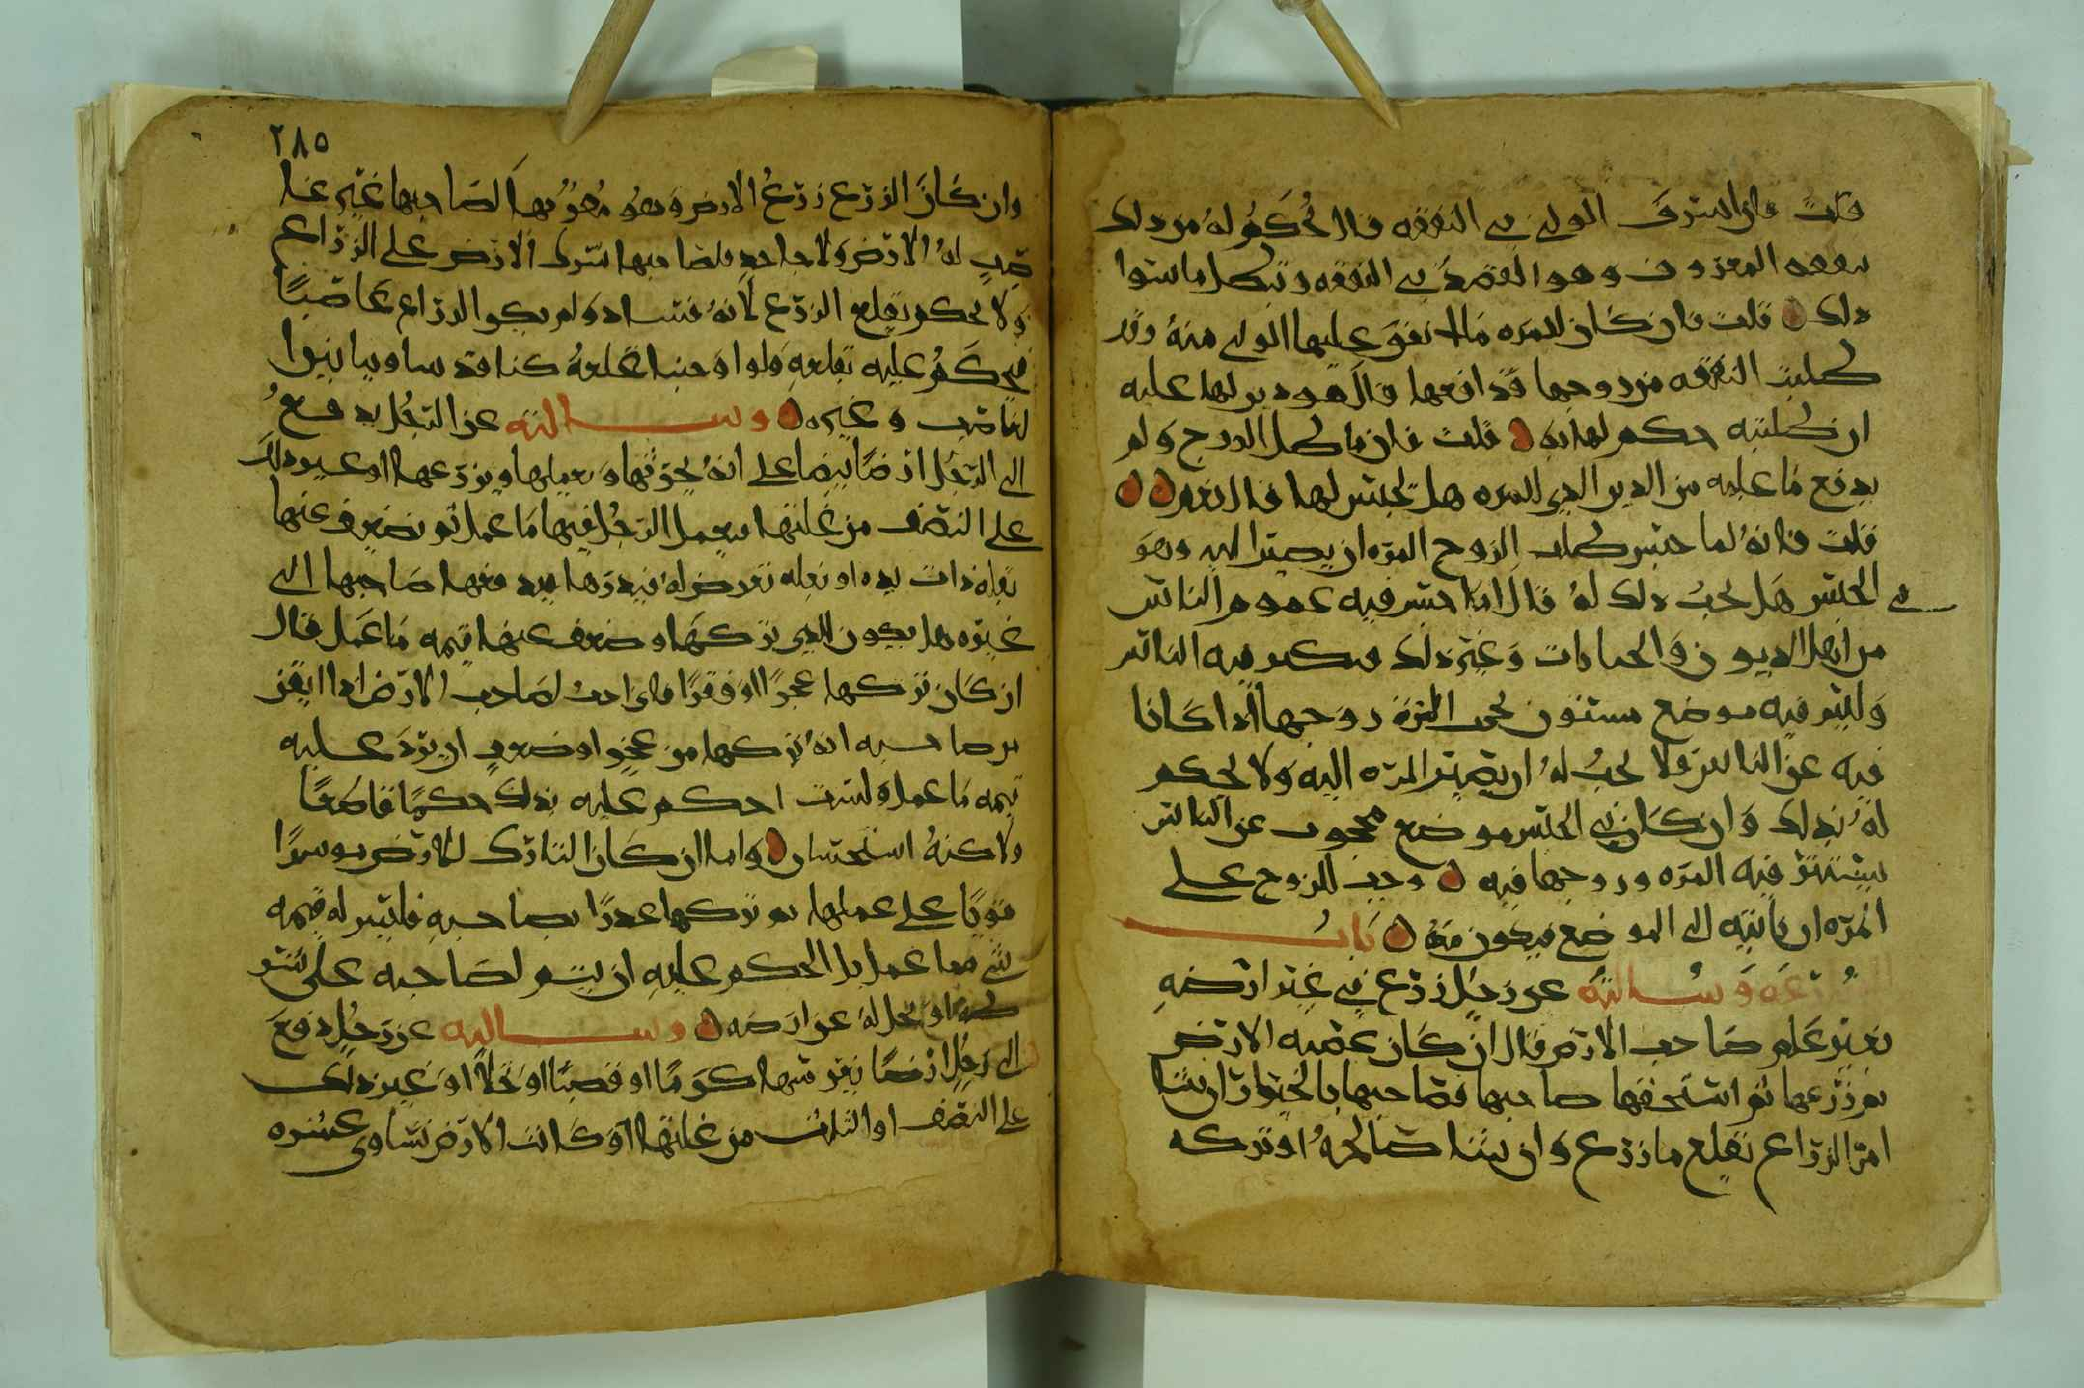 قلت فان اسرف الولي في النفقه قال يحكم له من ذلك
بنفقه المعروف وهو القصد في النفقه وتبطل ما سوا
ذلك قلت فان كان للمره مال انفق عليها الولي منه وقد
طلبت النفقه من زوجها فدافعها قال هو دين لها عليه
ان طلبته حكم لها به قلت فان ماطل الزوج ولم
يدفع ما عليه من الدين الذي للمره هل يحبس لها قال نعم
قلت فانه لما حبس طلب الزوج المره ان يصير اليه وهو
في الحبس هل يجب ذلك له قال اذا حبس فيه عموم الناس
من اهل الديون والجنايات وغير ذلك فيكثر فيه الناس
وليس فيه موضع مستور يجمع المره زوجها اذا كانا
فيه عن الناس فلا يجب له ان تصير المره اليه ولا يحكم
له بذلك وان كان في الحبس موضع محجوب عن الناس
يستتر فيه المره وزوجها فيه وجب للزوج على
المره ان تاتيه الى الموضع فيكون معه باب
وسالته عن رجل زرع في غير ارضه
بغير علم صاحب الارض قال ان كان غصبه الارض
ثم زرعها ثم استحقها صاحبها فصاحبها بالخيار ان شا
امر الزراع بقلع ما زرع وان شا صالحه او تركه
٢٨٥
وان كان الزرع زرع الارض وهو مقر بها لصاحبها غير غا
صب له الارض ولا جاحد فلصاحبها شرك الارض على الزراع
ولا يحكم بقلع الزرع لانه فساد ولم يكن الزراع غاصبا
فيحكم عليه بقلعه فلو اوجبنا قلعه كنا قد ساوينا بين ا
لغاصب وغيره وسالته عن الرجل يدفع
الى الرجل ارضا بيضا على انه يحرثها ويعملها ويزرعها او غير ذلك
على النصف من غلتها فيعمل الرجل فيها ما عمل ثم يضعف عنها
بقلة ذات يده او بعله تعرض له فيذرها فيدفعها صاحبها الى
غيره هل يكون للذي تركها وضعف عنها قيمه ما عمل قال
ان كان تركها عجزا او فقرا فاني احب لصاحب الارض اذا ايقن
من صاحبه انه تركها من عجز او ضعف ان يرد عليه
قيمه ما عمل وليست احكم عليه بذلك حكما قاطعا
ولاكنه استحسان واما ان كان التارك للارض موسرا
قويا على عملها ثم تركها غدرا بصاحبه فليس له قيمه
شي مما عمل بل الحكم عليه ان يتم لصاحبه على شر
طه او يحل له عن ارضه وسالته عن رجل دفع
الى رجل ارضا يغرسها كرما او قصبا او نخلا او غير ذلك
على النصف او الثلث من غلتها او كانت الارض تساوي عشره